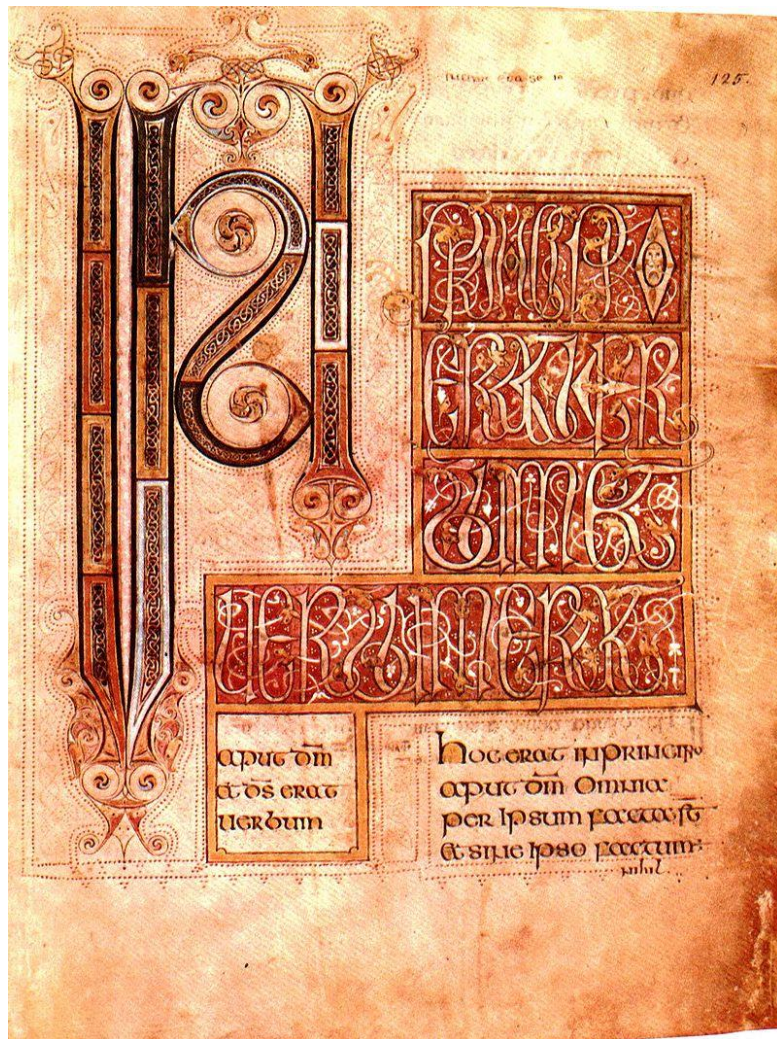 125.
IN
PRINCIPIO
ERAT UER
BUM &
UERBUM ERAT
aput dm̄
et ds̄ erat
uerbum
hoc erat in principio
aput dm̄ omnia
per ipsum facta st̄
et sine ipso factum
nihil